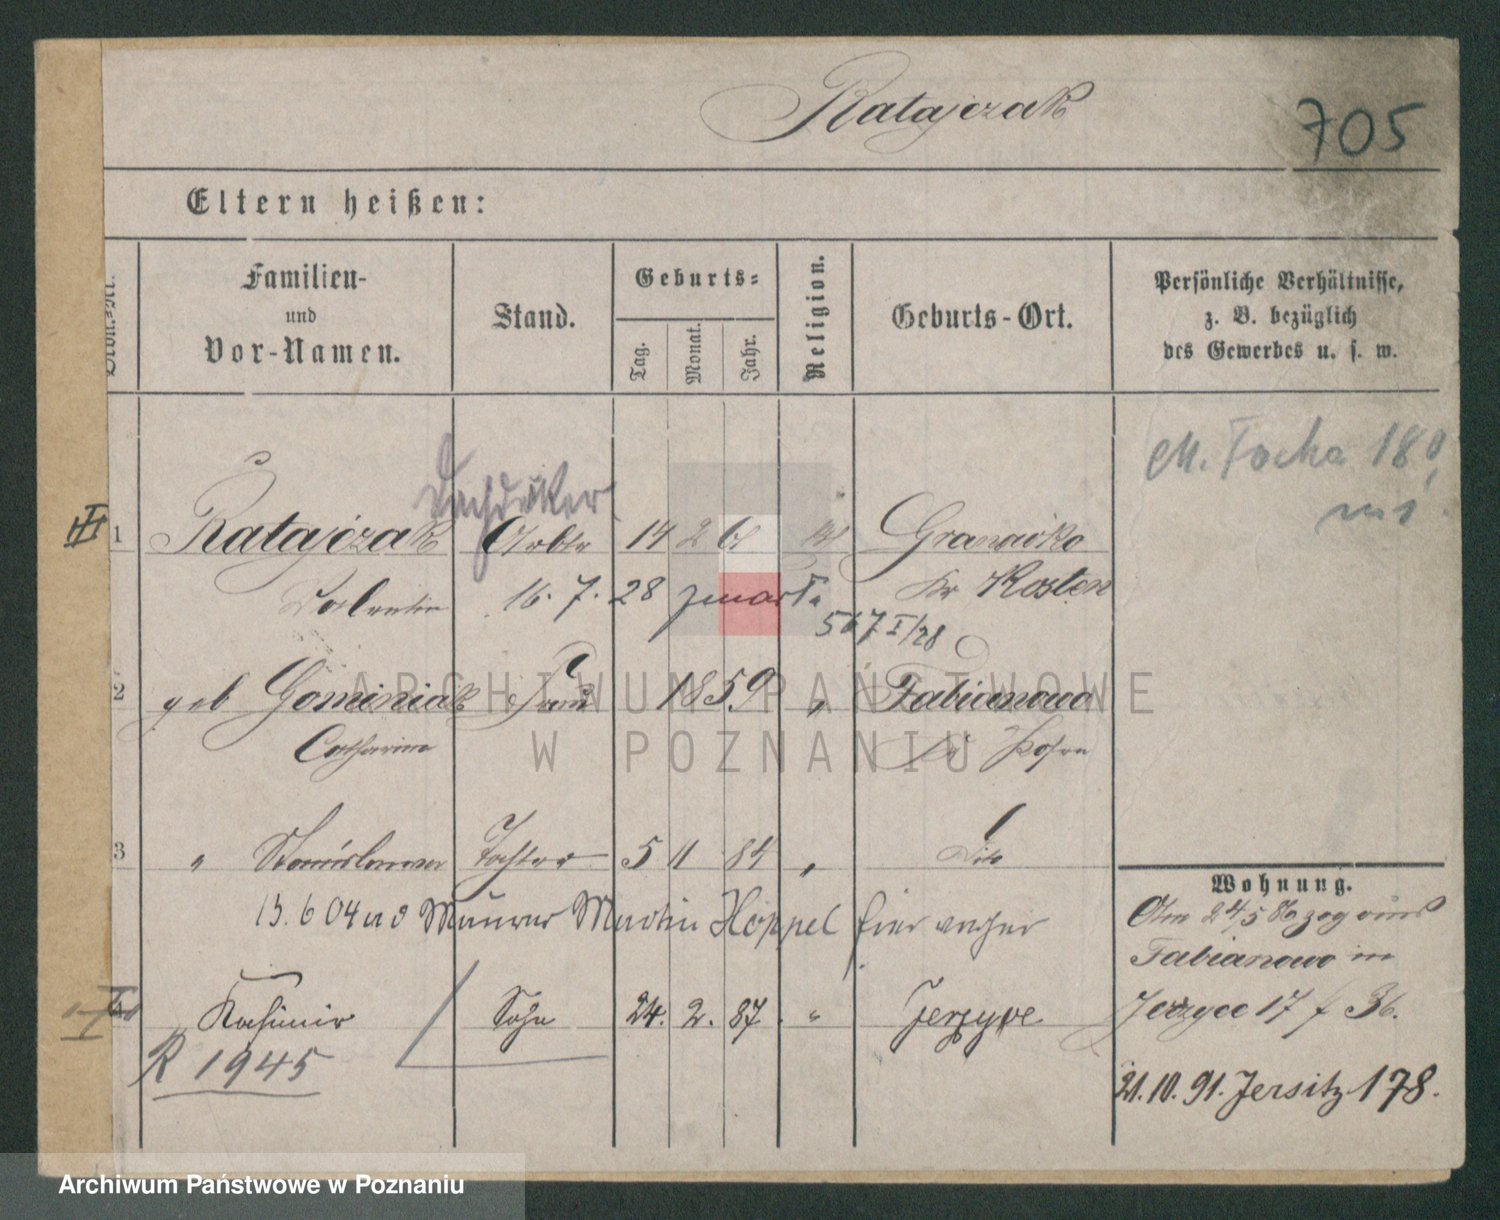 Ratajczak
705
Eltern heißen:
Familien-
und
Vor-Namen.
Stand.
Geburts-
Tag.
Monat.
Jahr.
Religion.
Geburts-Ort.
Persönliche Verhältnisse,
z. B. bezüglich
des Gewerbes u. s. w.
M. Focha 180
Dachdeker
1 Ratajczak Arbtr 14 2 Granowko
Valentin 16. 7. 28 zmarł. Kr Kosten
567 I/28
2 geb Gominiak Frau 1859 " Fabianowo
Catharina Kr Posen
3 " Stanislawa Tochter 5 11 84 " dito
15. 6 04 Maurer Martin Hoppel hier
Wohnung.
Am 24/5 86 zog aus
Fabianowo in
4 " Kasimir Sohn 24. 2. 87. " Jerzyce
Jerzyce 17 f 36.
R 1945
21. 10. 91. Jersitz 178.
ARCHIWUM PAŃSTWOWE
W POZNANIU
Archiwum Państwowe w Poznaniu